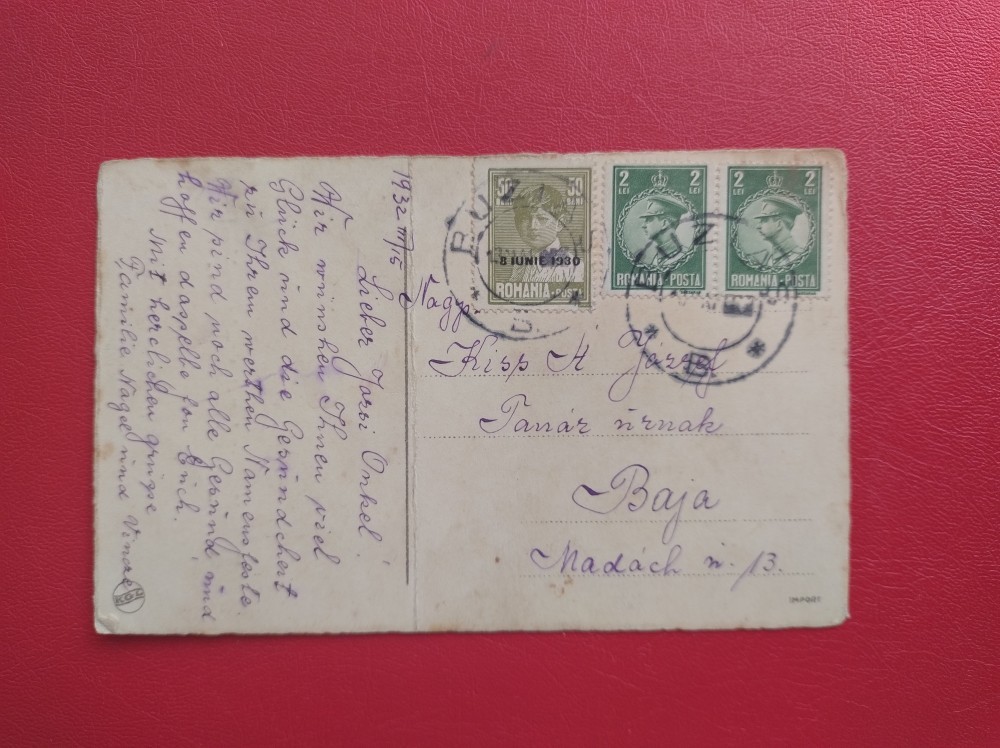 1932 III/15
Lieber Jorsi Onkel!
Wir wünshen Ihnen viel
Glück und die Gesündcheit
zu Ihrem werthen Namensfoste.
Wir sind noch alle Gesünd und
hoffen dasselbe fon Euch.
Mit herclichen grüsse
Familie Nagel und
KGV
50 50
BANI
8 IUNIE 1930
ROMANIA-POSTA
2 LEI 2 LEI
ROMANIA-POSTA ROMANIA-POSTA
BUZ
UZ
* B *
Nagys.
Kiss A József
Tanár úrnak
Baja
Madách u. 13.
IMPORT